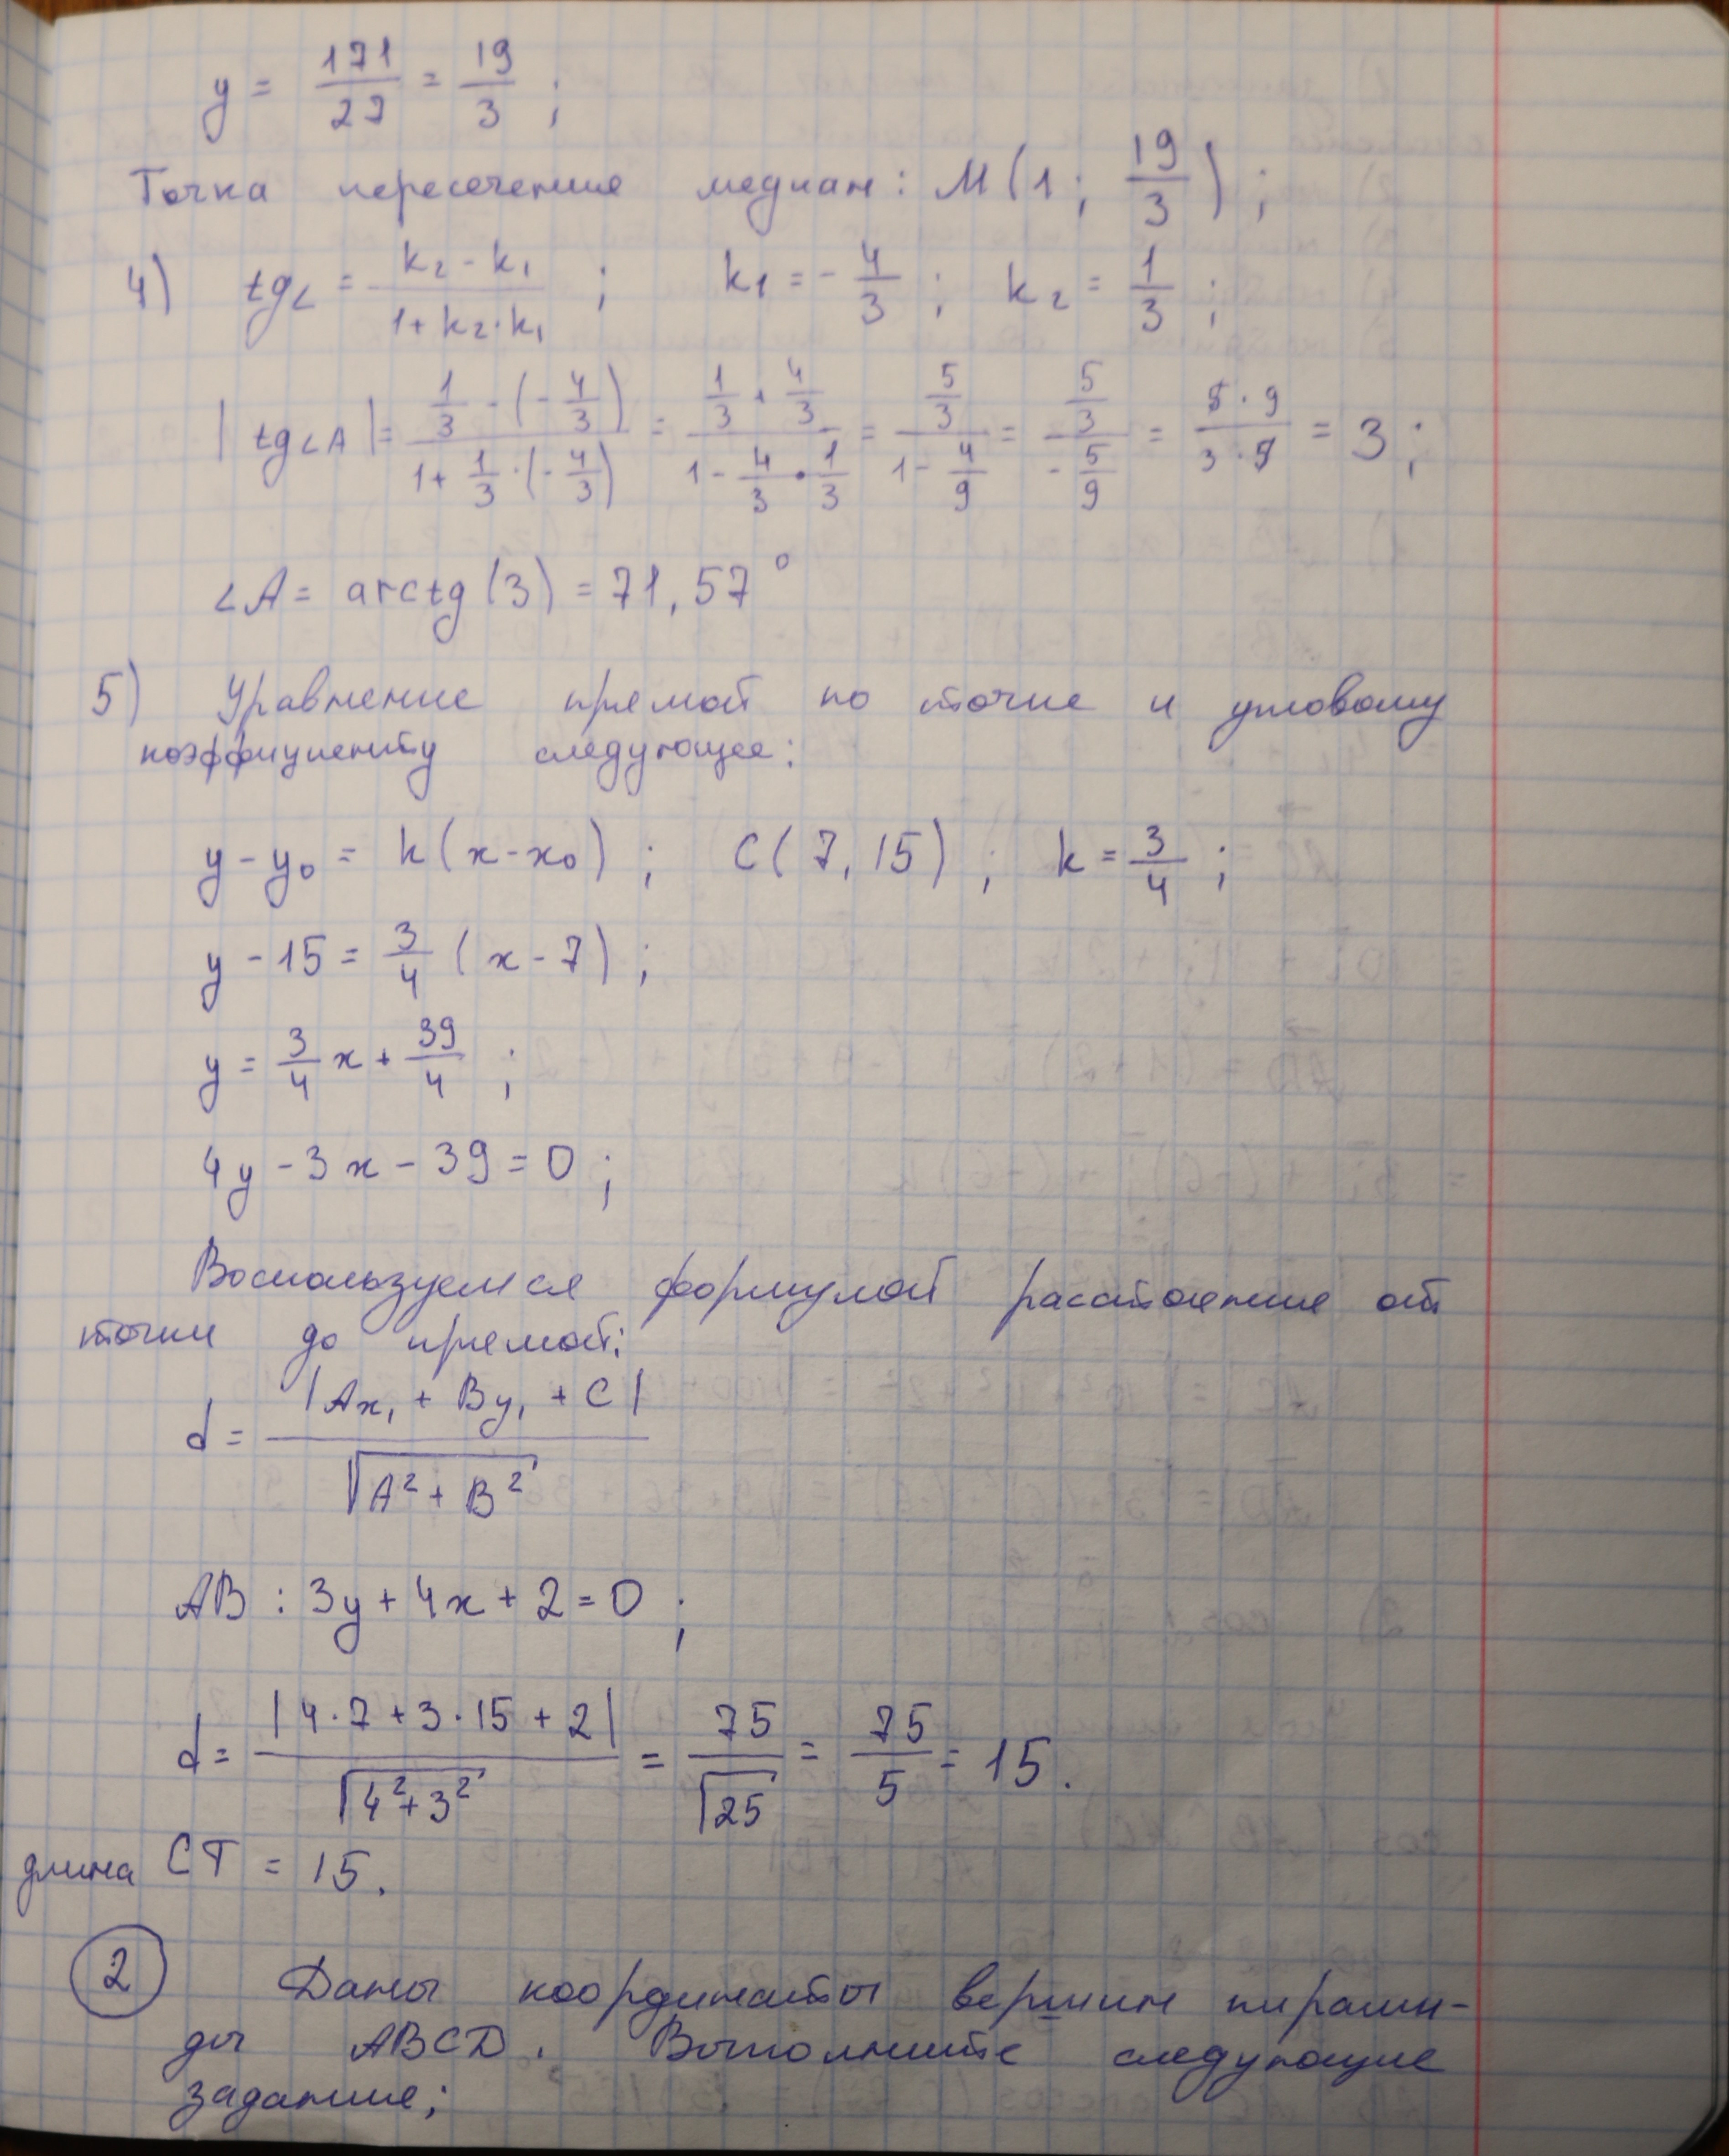 y = 171/27 = 19/3 ;
Точка пересечение медиан: M(1; 19/3) ;
4) tg∠ = (k₂ - k₁)/(1 + k₂·k₁) ; k₁ = -4/3 ; k₂ = 1/3 ;
|tg∠A| = (1/3 - (-4/3))/(1 + 1/3·(-4/3)) = (1/3 + 4/3)/(1 - 4/3·1/3) = (5/3)/(1 - 4/9) = (5/3)/(-5/9) = (5·9)/(3·5) = 3 ;
∠A = arctg(3) = 71,57°
5) Уравнение прямой по точке и угловому
коэффициенту следующее:
y - y₀ = k(x - x₀) ; C(7, 15) ; k = 3/4 ;
y - 15 = 3/4 (x - 7) ;
y = 3/4 x + 39/4 ;
4y - 3x - 39 = 0 ;
Воспользуемся формулой расстояние от
точки до прямой:
d = |Ax₁ + By₁ + C| / √(A² + B²)
AB : 3y + 4x + 2 = 0 ;
d = |4·7 + 3·15 + 2| / √(4² + 3²) = 75/√25 = 75/5 = 15.
длина CT = 15.
2 Даны координаты вершин пирами-
ды ABCD. Выполните следующие
задание;